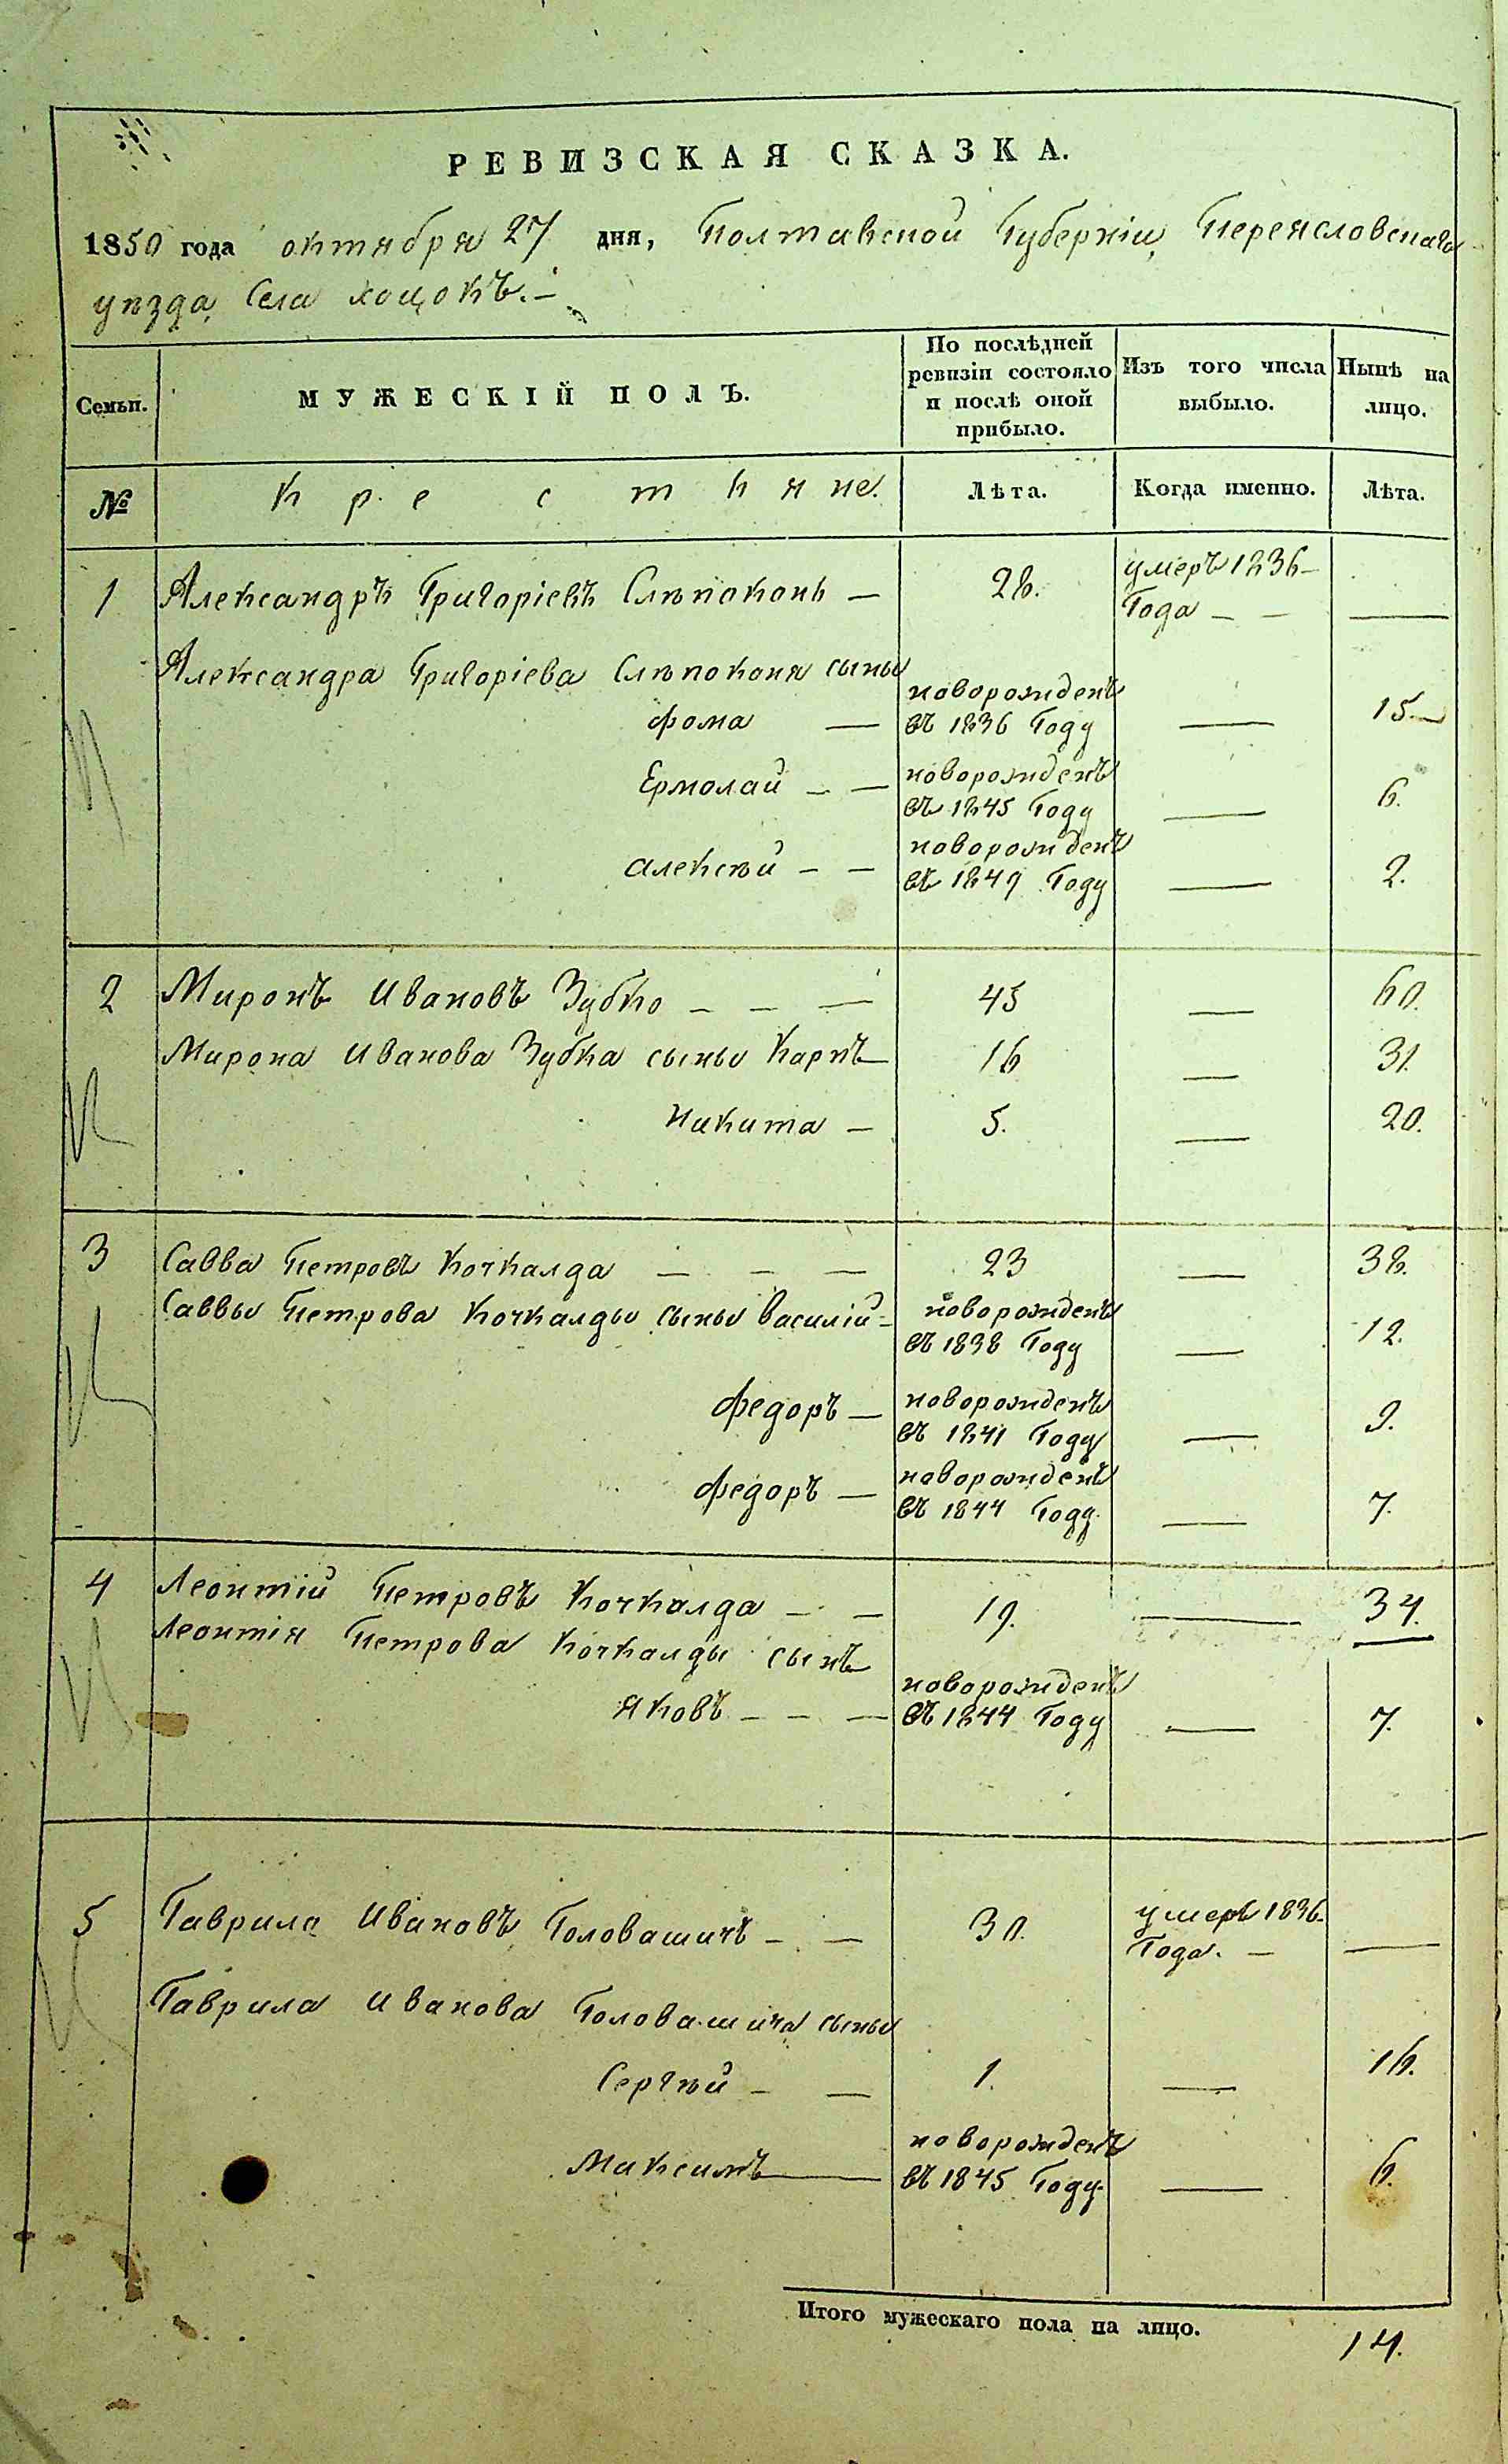 РЕВИЗСКАЯ СКАЗКА.
1850 года октября 27 дня, Полтавской Губерніи, Переясловскаго
уѣзда, Села Хоцокъ.-
Семьи.
МУЖЕСКІЙ ПОЛЪ.
По послѣдней
ревизіи состояло
и послѣ оной
прибыло.
Изъ того числа
выбыло.
Нынѣ на
лицо.
№
Крестьяне.
Лѣта.
Когда именно.
Лѣта.
1 Александръ Григоріевъ Слѣпоконь — 28. умеръ 1836-
Года — — —
Александра Григоріева Слѣпоконя сыны
новорожденъ
Фома — въ 1836 Году — 15.—
новорожденъ
Ермолай — — въ 1845 Году — 6.
новорожденъ
Алексѣй — — въ 1849 Году — 2.
2 Миронъ Ивановъ Зубко — — — 45 — 60.
Мирона Иванова Зубка сыны Карпъ 16 — 31.
Никита — 5. — 20.
3 Савва Петровъ Кочкалда — — — 23 — 38.
Саввы Петрова Кочкалды сыны Василій- новорожденъ
въ 1838 Году — 12.
Федоръ — новорожденъ
въ 1841 Году — 9.
Федоръ — новорожденъ
въ 1844 Году. — 7.
4 Леонтій Петровъ Кочкалда — — 19. — 34.
Леонтія Петрова Кочкалды сынъ
новорожденъ
Яковъ — — — въ 1844 Году — 7.
5 Гаврила Ивановъ Головашичъ — — 30. умеръ 1836-
Года. — —
Гаврила Иванова Головашича сыны
Сергѣй — — 1. — 16.
новорожденъ
Максимъ — въ 1845 Году. — 6.
Итого мужескаго пола на лицо. 14.